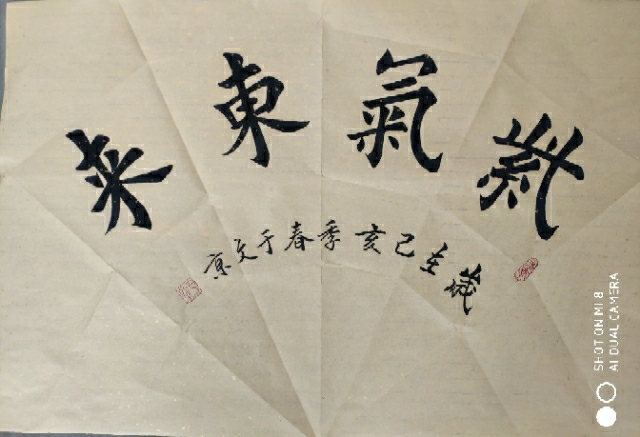 紫氣東来
歲在己亥季春于文京
SHOT ON MI 8
AI DUAL CAMERA